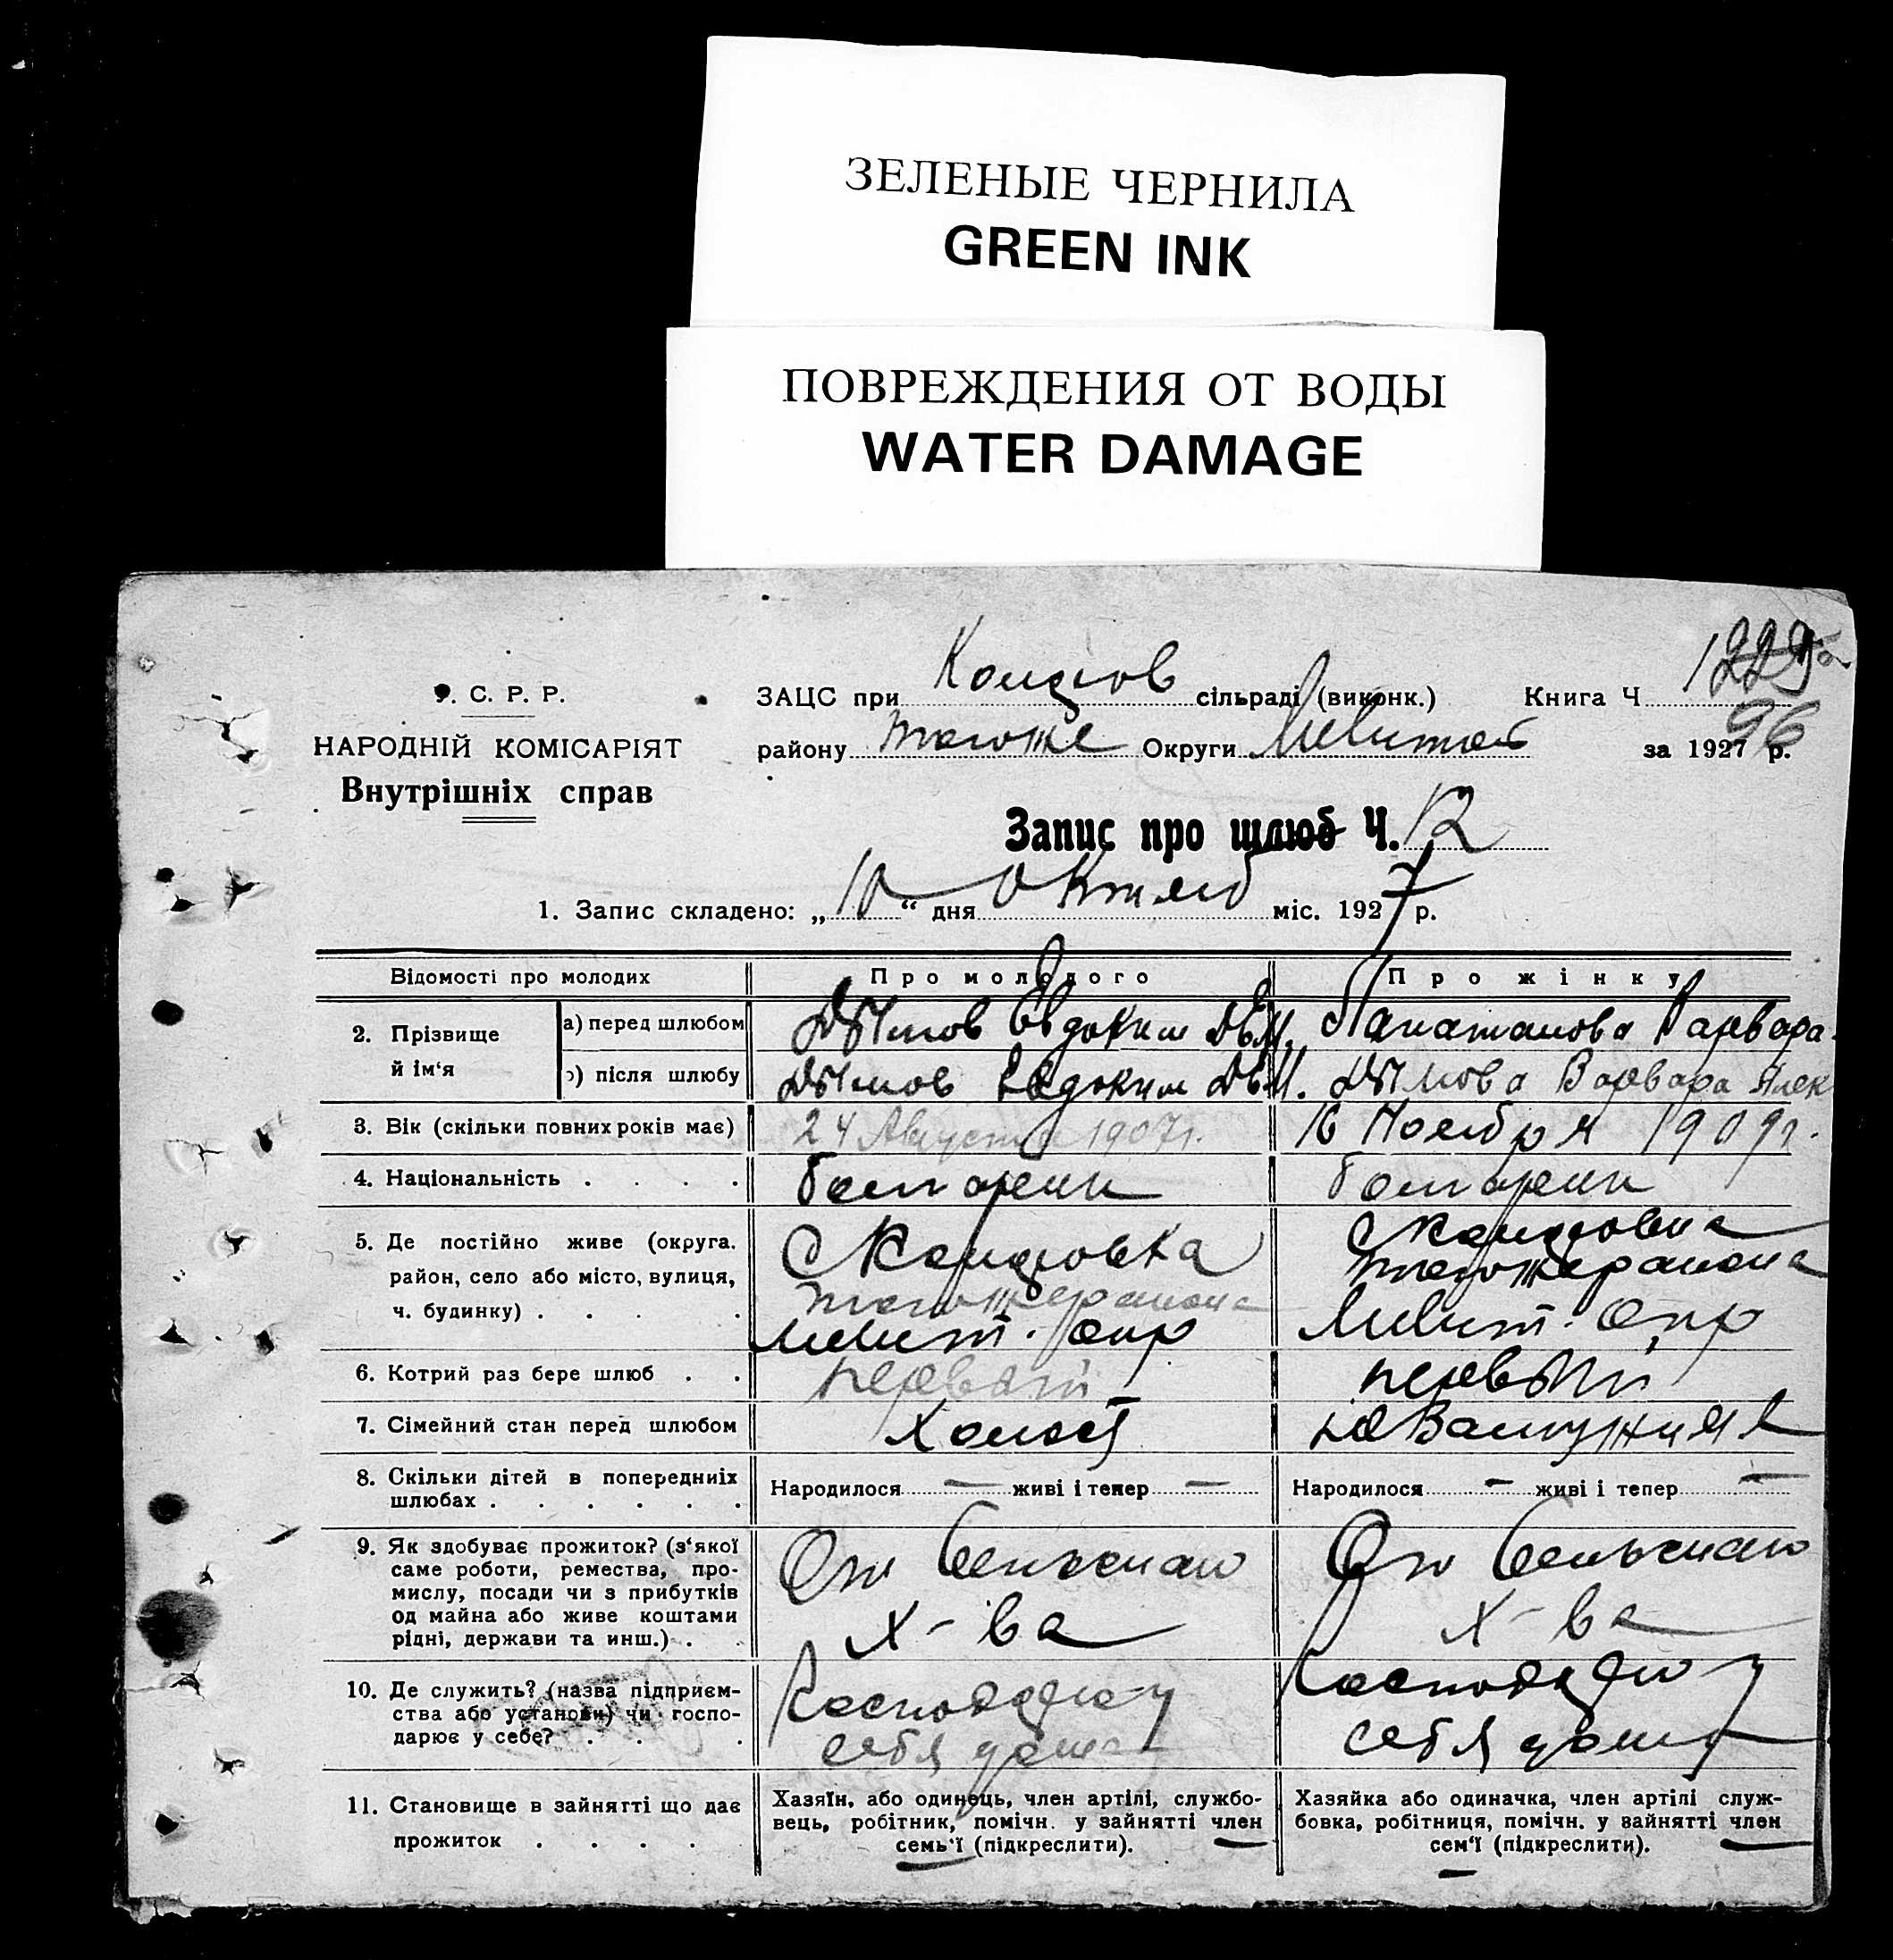 ЗЕЛЕНЫЕ ЧЕРНИЛА
GREEN INK
ПОВРЕЖДЕНИЯ ОТ ВОДЫ
WATER DAMAGE
У. С. Р. Р.
НАРОДНІЙ КОМІСАРІЯТ
Внутрішніх справ
ЗАЦС при сільраді (виконк.) Книга Ч
96
району тогоже Округи Мелитоп за 1927 р.
Запис про шлюб Ч. 12
1. Запис складено: „10“ дня Октяб міс. 1927 р.
Відомості про молодих Про молодого Про жінку
2. Прізвище й ім‘я
а) перед шлюбом Евдоким Варвара
б) після шлюбу Евдоким Варвара Алек
3. Вік (скільки повних років має) 24 Августа 1907г. 16 Ноября 1909г.
4. Національність . . . . болгарин болгарин
5. Де постійно живе (округа, район, село або місто, вулиця, ч. будинку) . . . .
тогожерайона тогожерайона
Мелит. окр Мелит. окр
6. Котрий раз бере шлюб . . первый первый
7. Сімейний стан перед шлюбом холост
8. Скільки дітей в попередниіх шлюбах . . . . . .
Народилося — живі і тепер — Народилося — живі і тепер —
9. Як здобуває прожиток? (з‘якої саме роботи, ремества, промислу, посади чи з прибутків од майна або живе коштами рідні, держави та инш.) . .
От сельскаго От сельскаго
х-ва х-ва
10. Де служить? (назва підприємства або установи) чи господарює у себе? . . .
себя дома себя дома
11. Становище в зайнятті що дає прожиток . . . .
Хазяїн, або одинець, член артілі, службовець, робітник, помічн. у зайнятті член семь‘ї (підкреслити).
Хазяйка або одиначка, член артілі службовка, робітниця, помічн. у зайнятті член сем‘ї (підкреслити).